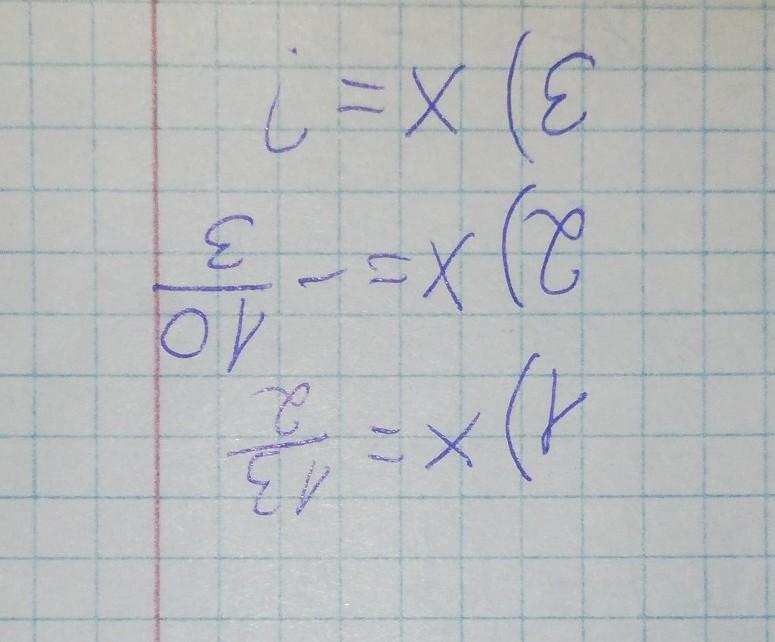 1) x = 13/2
2) x = - 10/3
3) x = ?